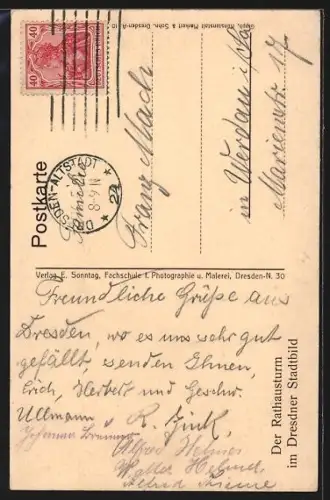 40 40
Postkarte
DRESDEN-ALTSTADT
8-9 N
* 24 *
Familie
Franz Mach
in Werdau i/Sa
Marienstr. 17
Verlag E. Sonntag, Fachschule f. Photographie u. Malerei, Dresden-N. 30
Freundliche Grüße aus
Dresden, wo es uns sehr gut
gefällt, senden Ihnen,
Erich, Herbert und Geschw.
Ullmann u. R. Fink,
Johanna
Alfred
Walter
Der Rathausturm
im Dresdner Stadtbild